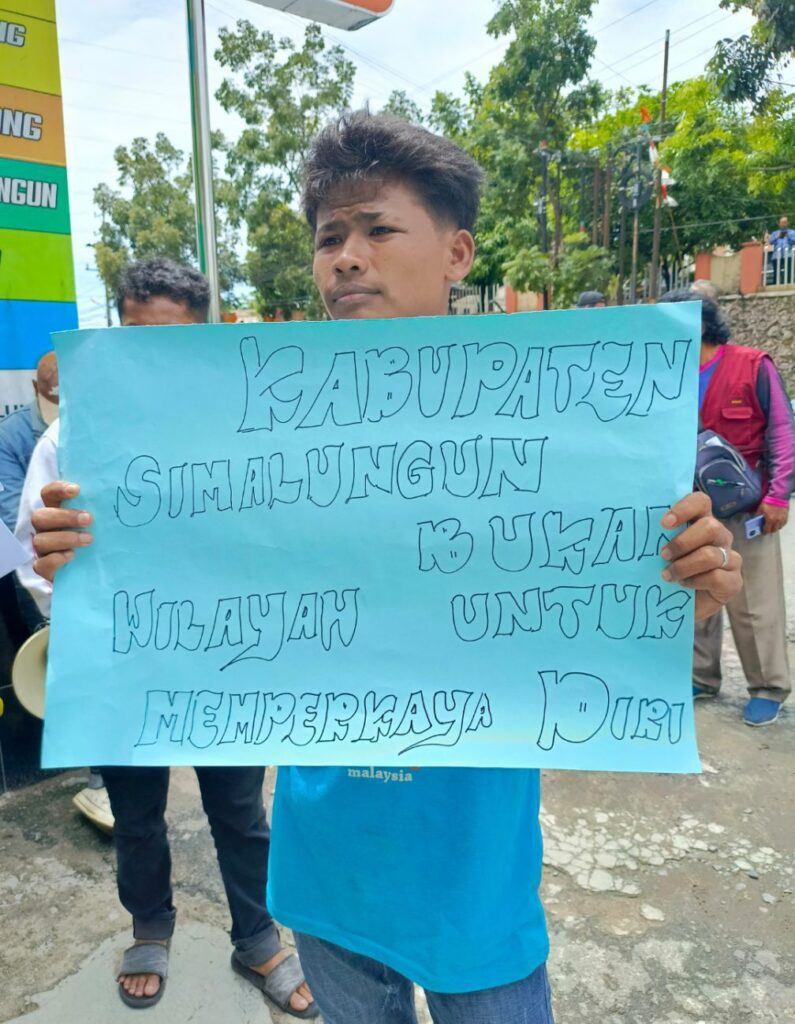 NG
NG
NGUN
KABUPATEN
SIMALUNGUN
BUKAN
WILAYAH UNTUK
MEMPERKAYA DIRI
malaysia